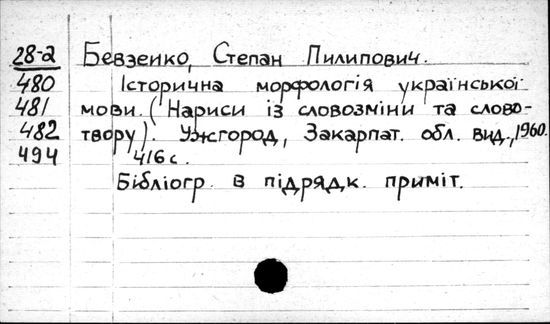 28-2 Бевзенко, Степан Пилипович.
480 Історична морфологія української
481 мови. (Нариси із словозміни та слово-
482 твору). Ужгород, Закарпат. обл. вид., 1960.
494 416 с.
Бібліогр. в підрядк. приміт.